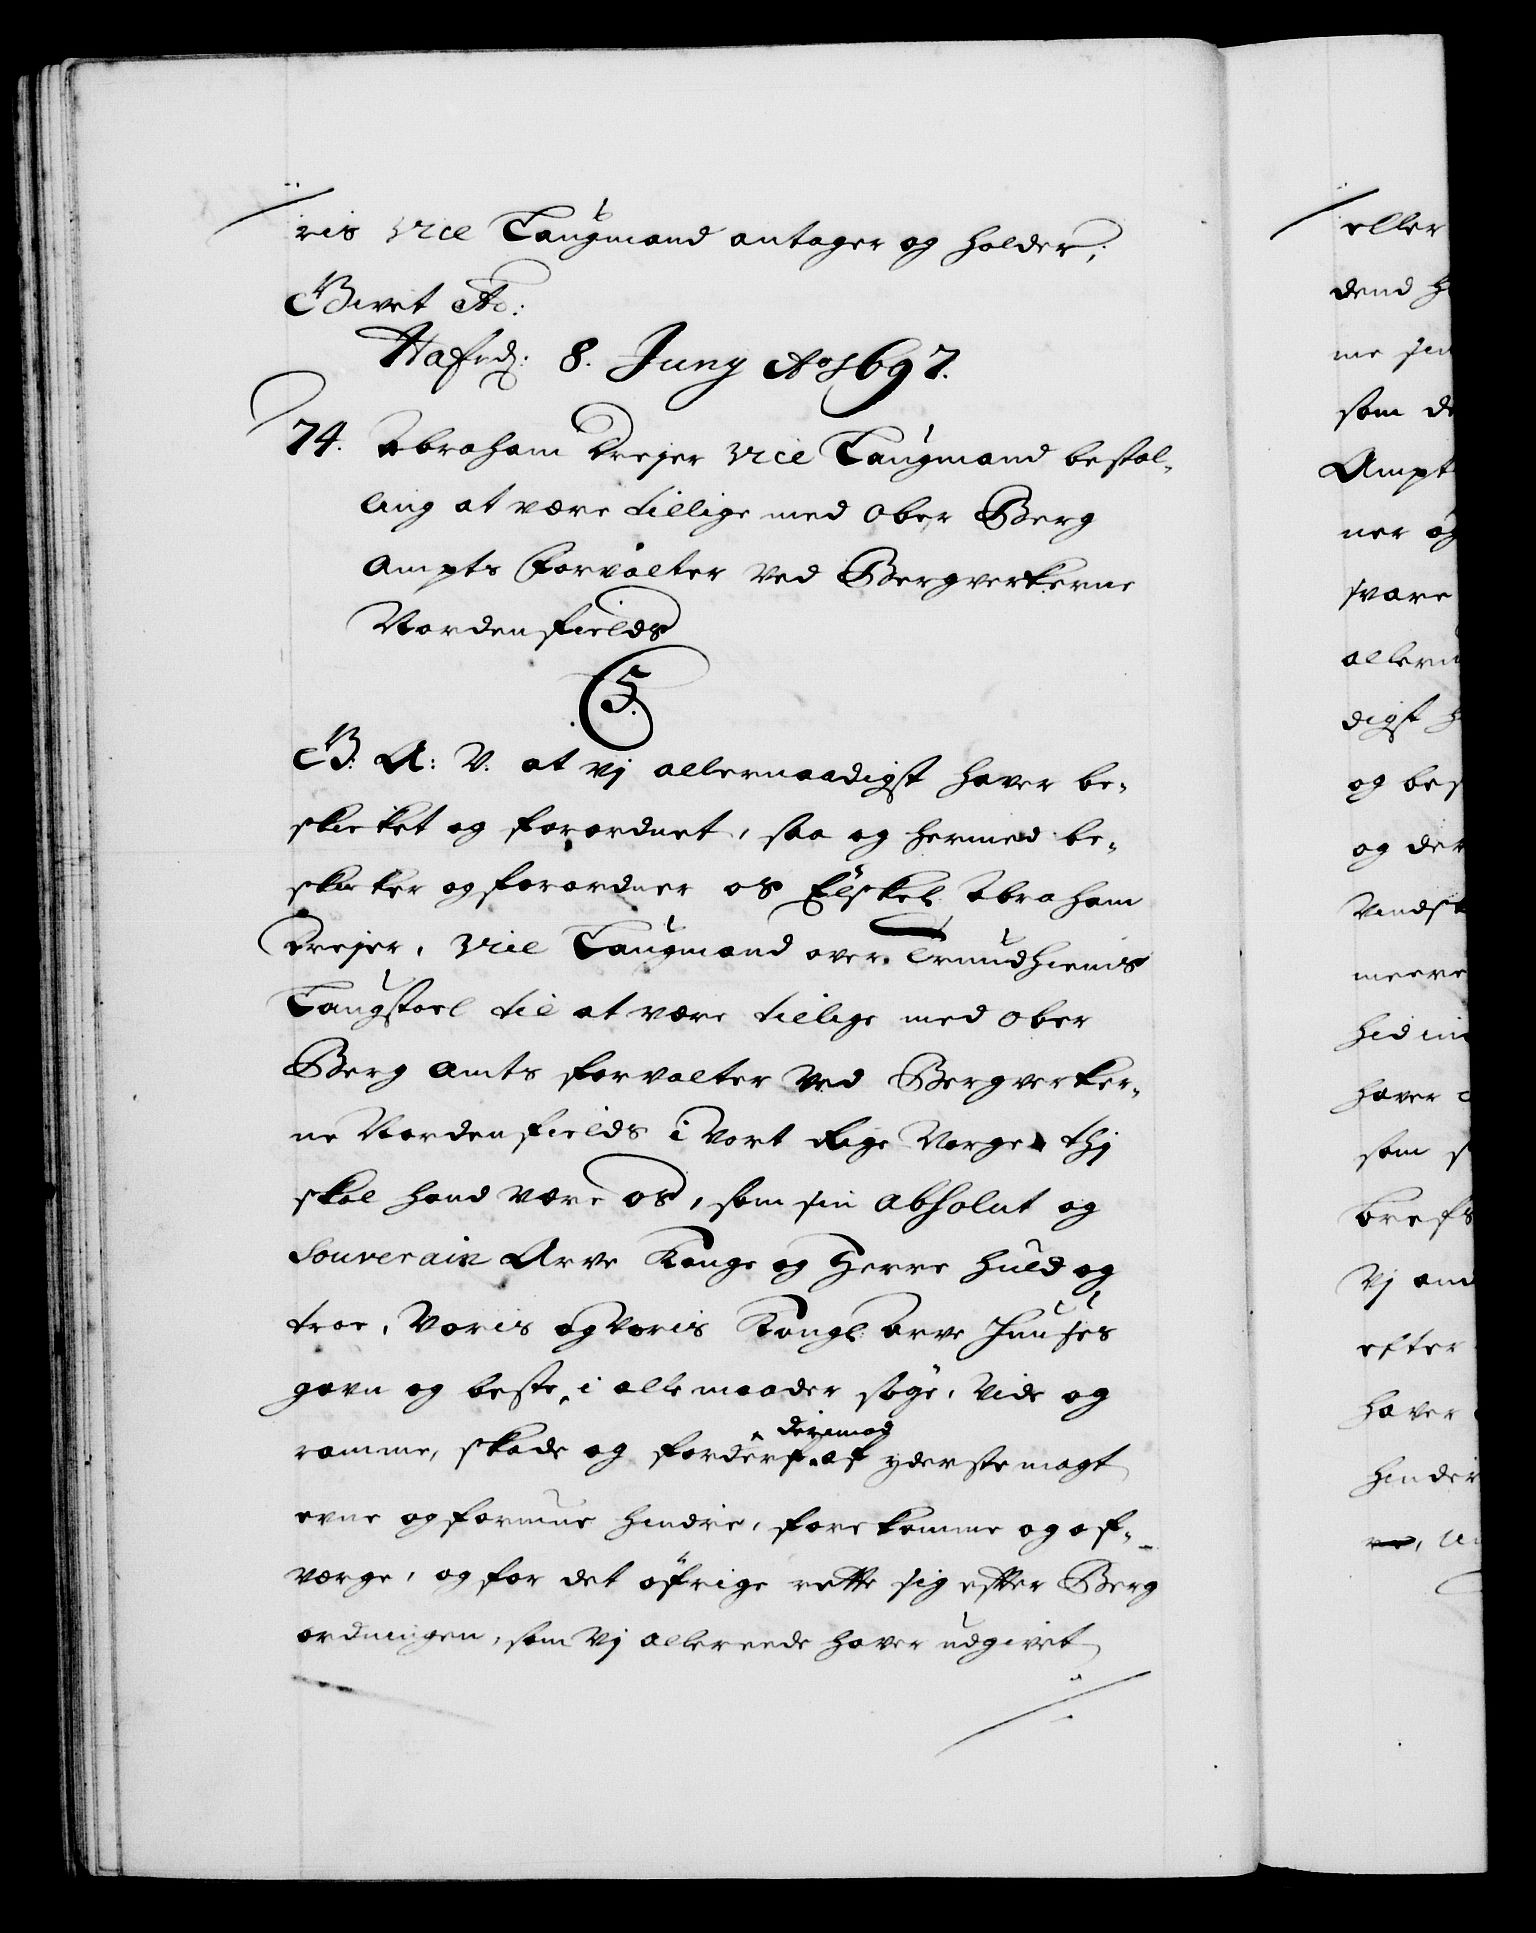 ris vice Laugmand antager og holder;
Givet etc:
Hafnd: 8. Juny Ao 1697.
74. Abraham Drejer vice Laugmand bestal-
ling at være tillige med Ober Berg
Ampts forvalter ved Bergverkerne
Nordenfields
C5.
G: A: V: at Vj allernaadigst haver be-
skicket og forordnet, saa og hermed be-
skicker og forordner os Elskel: Abraham
Drejer, Vice Laugmand over Trundhiems
Laugstoel til at være tillige med Ober
Berg Amts forvalter ved Bergverker-
ne Nordenfields i Vort Rige Norge thj
skal hand være os, som sin absolut og
Souverain Arve Konge og Herre huld og
troe, Voris og Voris Kongl: arve Huuses
gavn og beste, i alle maader søge, vide og
derimod
ramme, skade og forderf af yderste magt
evne og formue hindre, forekomme og af-
værge, og for det øfrige rette sig efter Berg
ordningen, som Vj allereede haver udgivet
eller
dend
som
Ampt
ner og
svare
digst
og
og der
meere
haver
som
Vj
efter
haver